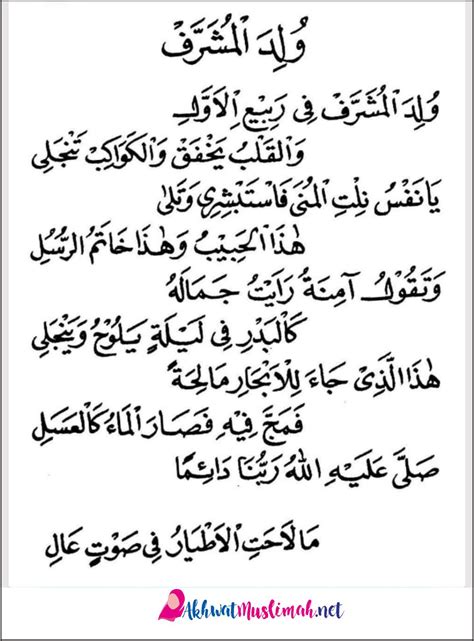 وُلِدَ الْمُشَرَّفْ
وُلِدَ الْمُشَرَّفْ فِى رَبِيْعِ الْاَوَّلِ
وَالْقَلْبُ يَخْفَقْ وَالْكَوَاكِبْ تَنْجَلِى
يَانَفْسُ نِلْتِ الْمُنَى فَاسْتَبْشِرِى وَتَلَى
هٰذَا الْحَبِيْبُ وَهٰذَا خَاتَمُ الرُّسُلِ
وَتَقُوْلُ آمِنَةُ رَاَيْتُ جَمَالَهُ
كَالْبَدْرِ فِى لَيْلَةٍ يَلُوْحُ وَيَنْجَلِى
هٰذَا الَّذِىْ جَاءَ لِلْاَبْحَارِ مَالِحَةً
فَمَجَّ فِيْهِ فَصَارَ الْمَاءُ كَالْعَسَلِ
صَلَّى عَلَيْهِ اللهُ رَبُّنَا دَائِمًا
مَالَاحَتِ الْاَطْيَارُ فِى صَوْتٍ عَالِ
AkhwatMuslimah.net